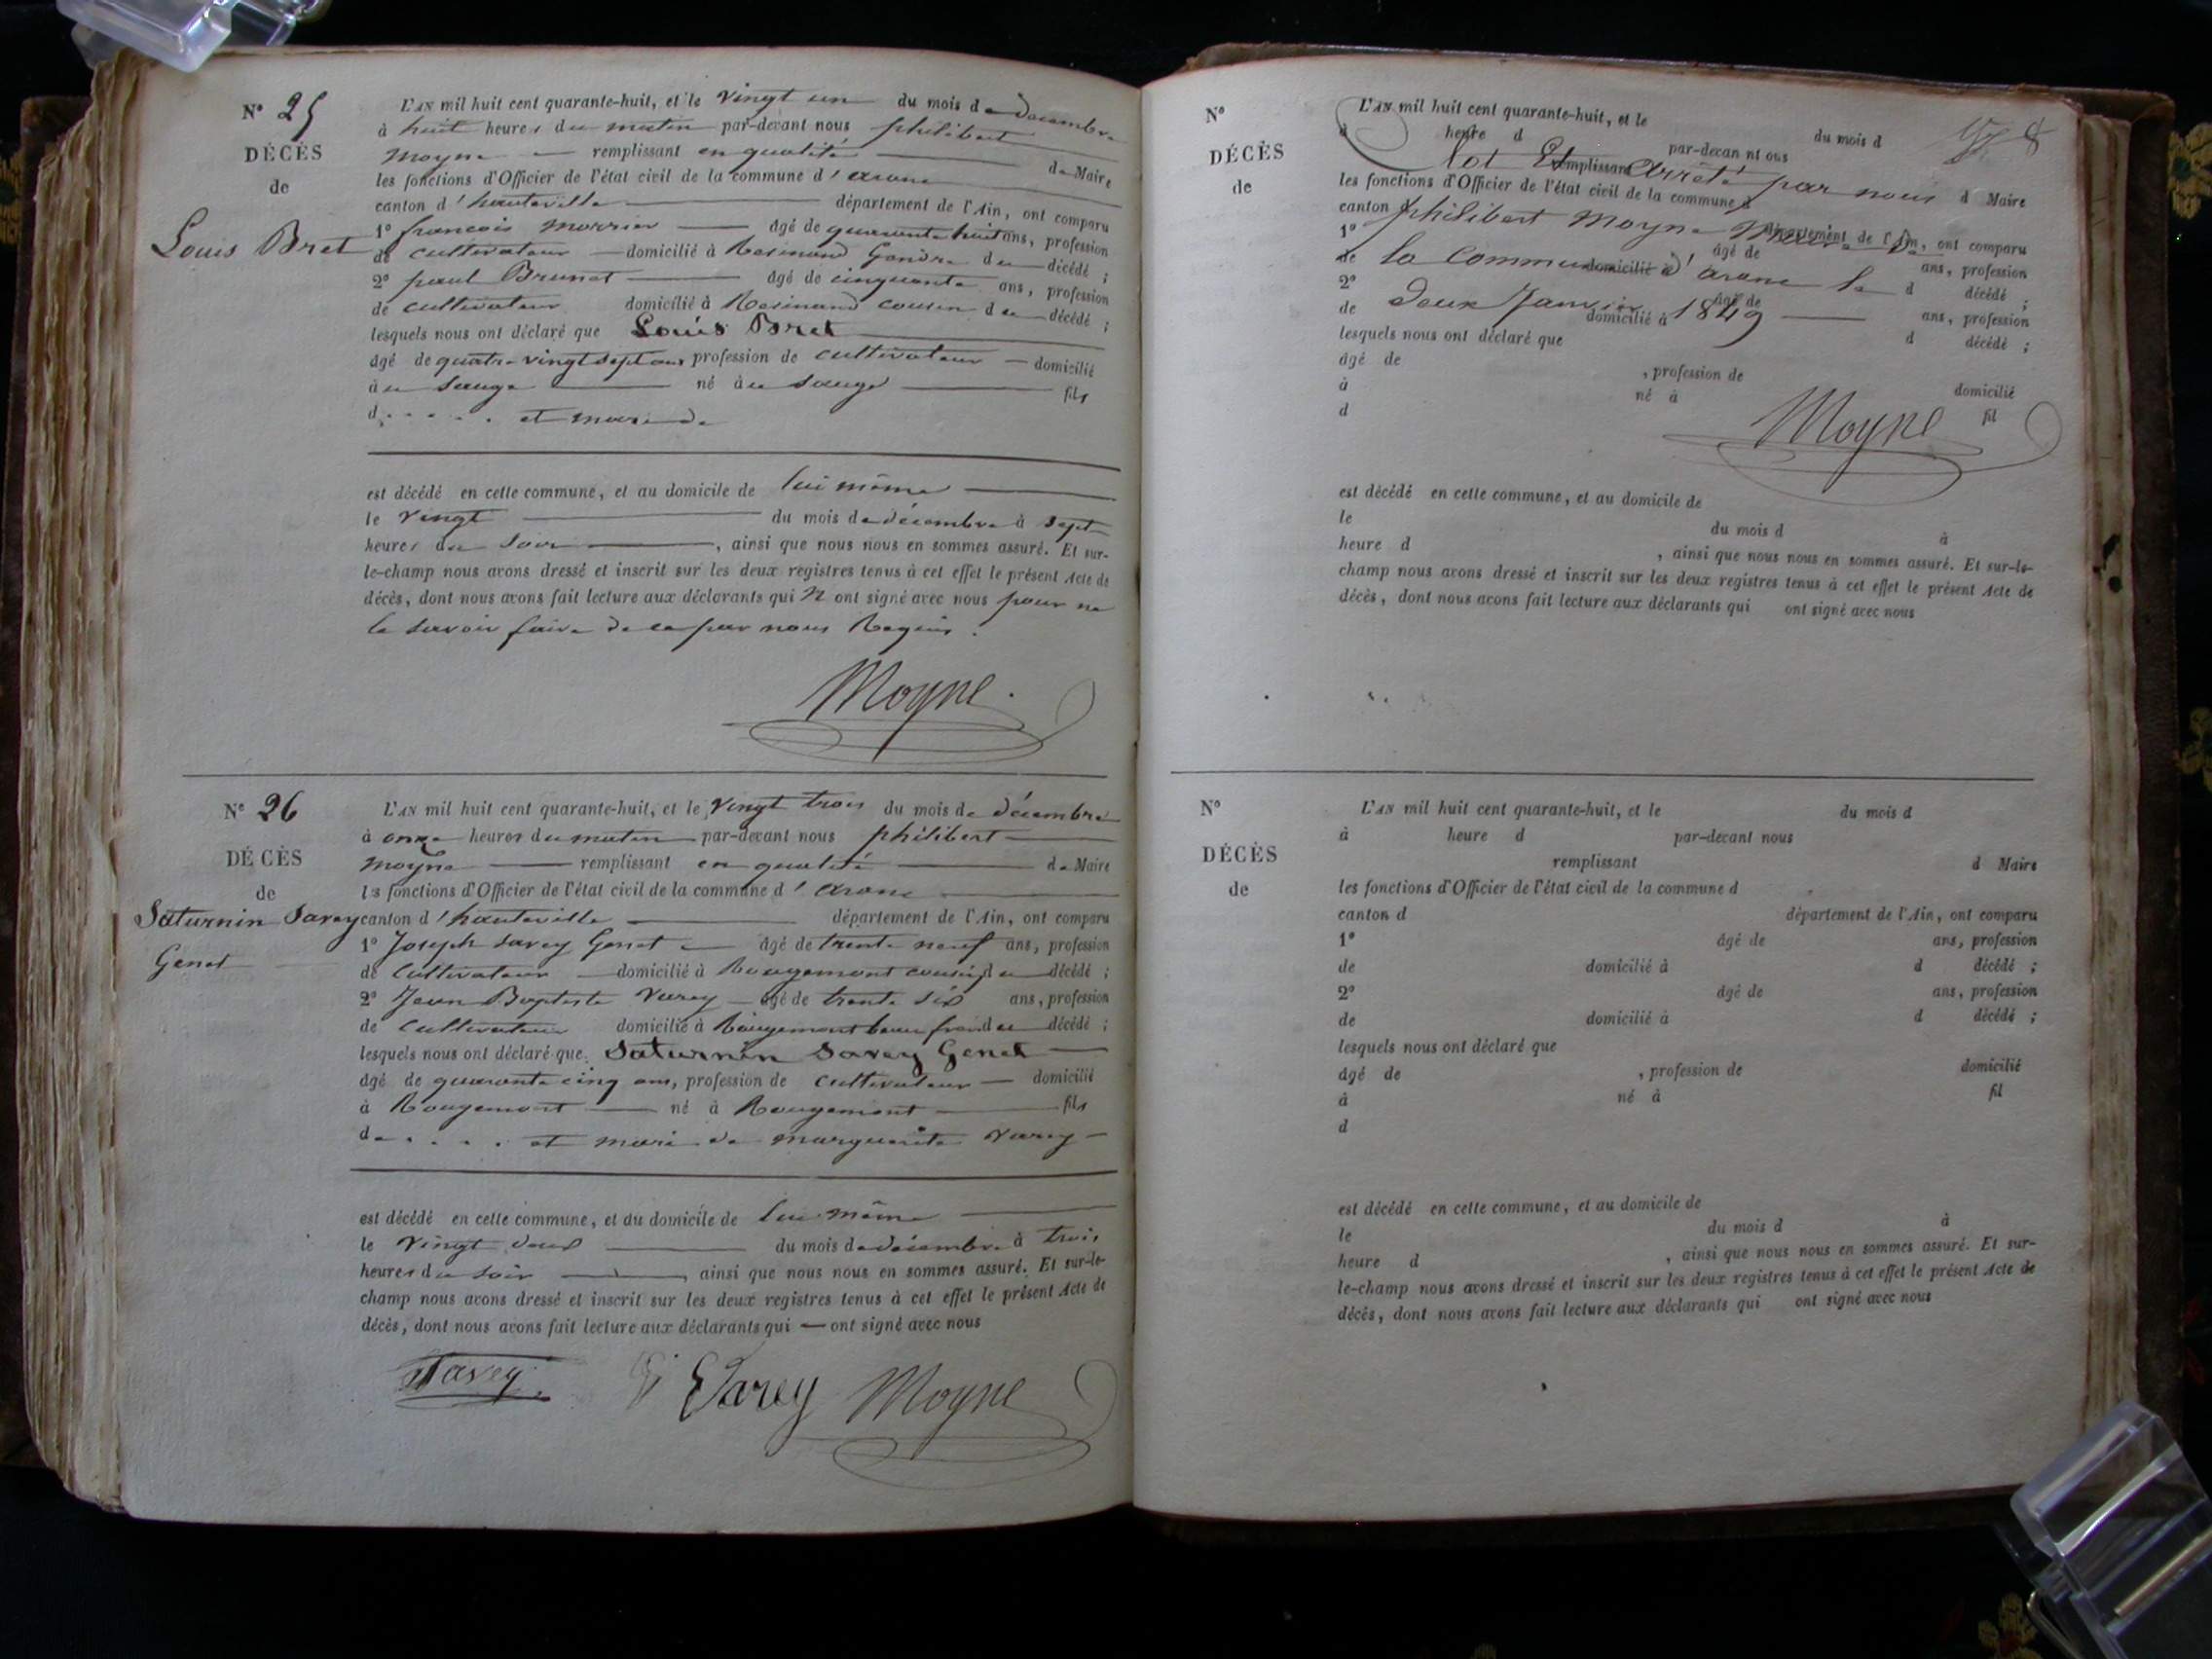 N° 25
DÉCÈS
de
Louis Bret
L'AN mil huit cent quarante-huit, et le vingt un du mois de décembre
à huit heures du matin par-devant nous philibert
Moyne remplissant en qualité de Maire
les fonctions d'Officier de l'état civil de la commune d'arane
canton d'hauteville département de l'Ain, ont comparu
1° francois morrier âgé de quarante huit ans, profession
de cultivateur domicilié à Resinand Gendre du décédé ;
2° paul Brunet âgé de cinquante ans, profession
de cultivateur domicilié à Resinand cousin du décédé ;
lesquels nous ont déclaré que Louis Bret
âgé de quatre vingt sept ans profession de cultivateur domicilié
à u Sauge né à u Sauge fils
d . . . . . et mari de
est décédé en cette commune, et au domicile de lui même
le vingt du mois de décembre à sept
heures du soir , ainsi que nous nous en sommes assuré. Et sur-
le-champ nous avons dressé et inscrit sur les deux registres tenus à cet effet le présent Acte de
décès, dont nous avons fait lecture aux déclarants qui n ont signé avec nous pour ne
le savoir faire de ce par nous Requis.
Moyne
N° 26
DÉCÈS
de
Saturnin Savey
Genet
L'AN mil huit cent quarante-huit, et le vingt trois du mois de décembre
à onze heures du matin par-devant nous philibert
moyne remplissant en qualité de Maire
les fonctions d'Officier de l'état civil de la commune d'arane
canton d'hauteville département de l'Ain, ont comparu
1° Joseph Savey Genet âgé de trente neuf ans, profession
de cultivateur domicilié à Rougemont cousin du décédé ;
2° Jean Baptiste Varey âgé de trente six ans, profession
de cultivateur domicilié à Rougemont beau frere du décédé ;
lesquels nous ont déclaré que Saturnin Savey Genet
âgé de quarante cinq ans, profession de cultivateur domicilié
à Rougemont né à Rougemont fils
de . . . . et mari de marguerite Varey
est décédé en cette commune, et au domicile de lui même
le vingt deux du mois de décembre à trois
heures du soir , ainsi que nous nous en sommes assuré. Et sur-le-
champ nous avons dressé et inscrit sur les deux registres tenus à cet effet le présent Acte de
décès, dont nous avons fait lecture aux déclarants qui — ont signé avec nous
Savey Varey Moyne
N°
DÉCÈS
de
L'AN mil huit cent quarante-huit, et le du mois d
à heure d par-devan nt ous
Clot Et Arrêté par nous
remplissant d Maire
les fonctions d'Officier de l'état civil de la commune d
philibert Moyne Maire de
canton d département de l'Ain, ont comparu
1° âgé de ans, profession
la commune d'arane le
de domicilié à d décédé ;
2° âgé de ans, profession
deux Janvier 1849
de domicilié à d décédé ;
lesquels nous ont déclaré que
âgé de , profession de domicilié
à né à fil
d
Moyne
est décédé en cette commune, et au domicile de
le du mois d à
heure d , ainsi que nous nous en sommes assuré. Et sur-le-
champ nous avons dressé et inscrit sur les deux registres tenus à cet effet le présent Acte de
décès, dont nous avons fait lecture aux déclarants qui ont signé avec nous
N°
DÉCÈS
de
L'AN mil huit cent quarante-huit, et le du mois d
à heure d par-devant nous
remplissant d Maire
les fonctions d'Officier de l'état civil de la commune d
canton d département de l'Ain, ont comparu
1° âgé de ans, profession
de domicilié à d décédé ;
2° âgé de ans, profession
de domicilié à d décédé ;
lesquels nous ont déclaré que
âgé de , profession de domicilié
à né à fil
d
est décédé en cette commune, et au domicile de
le du mois d à
heure d , ainsi que nous nous en sommes assuré. Et sur-
le-champ nous avons dressé et inscrit sur les deux registres tenus à cet effet le présent Acte de
décès, dont nous avons fait lecture aux déclarants qui ont signé avec nous